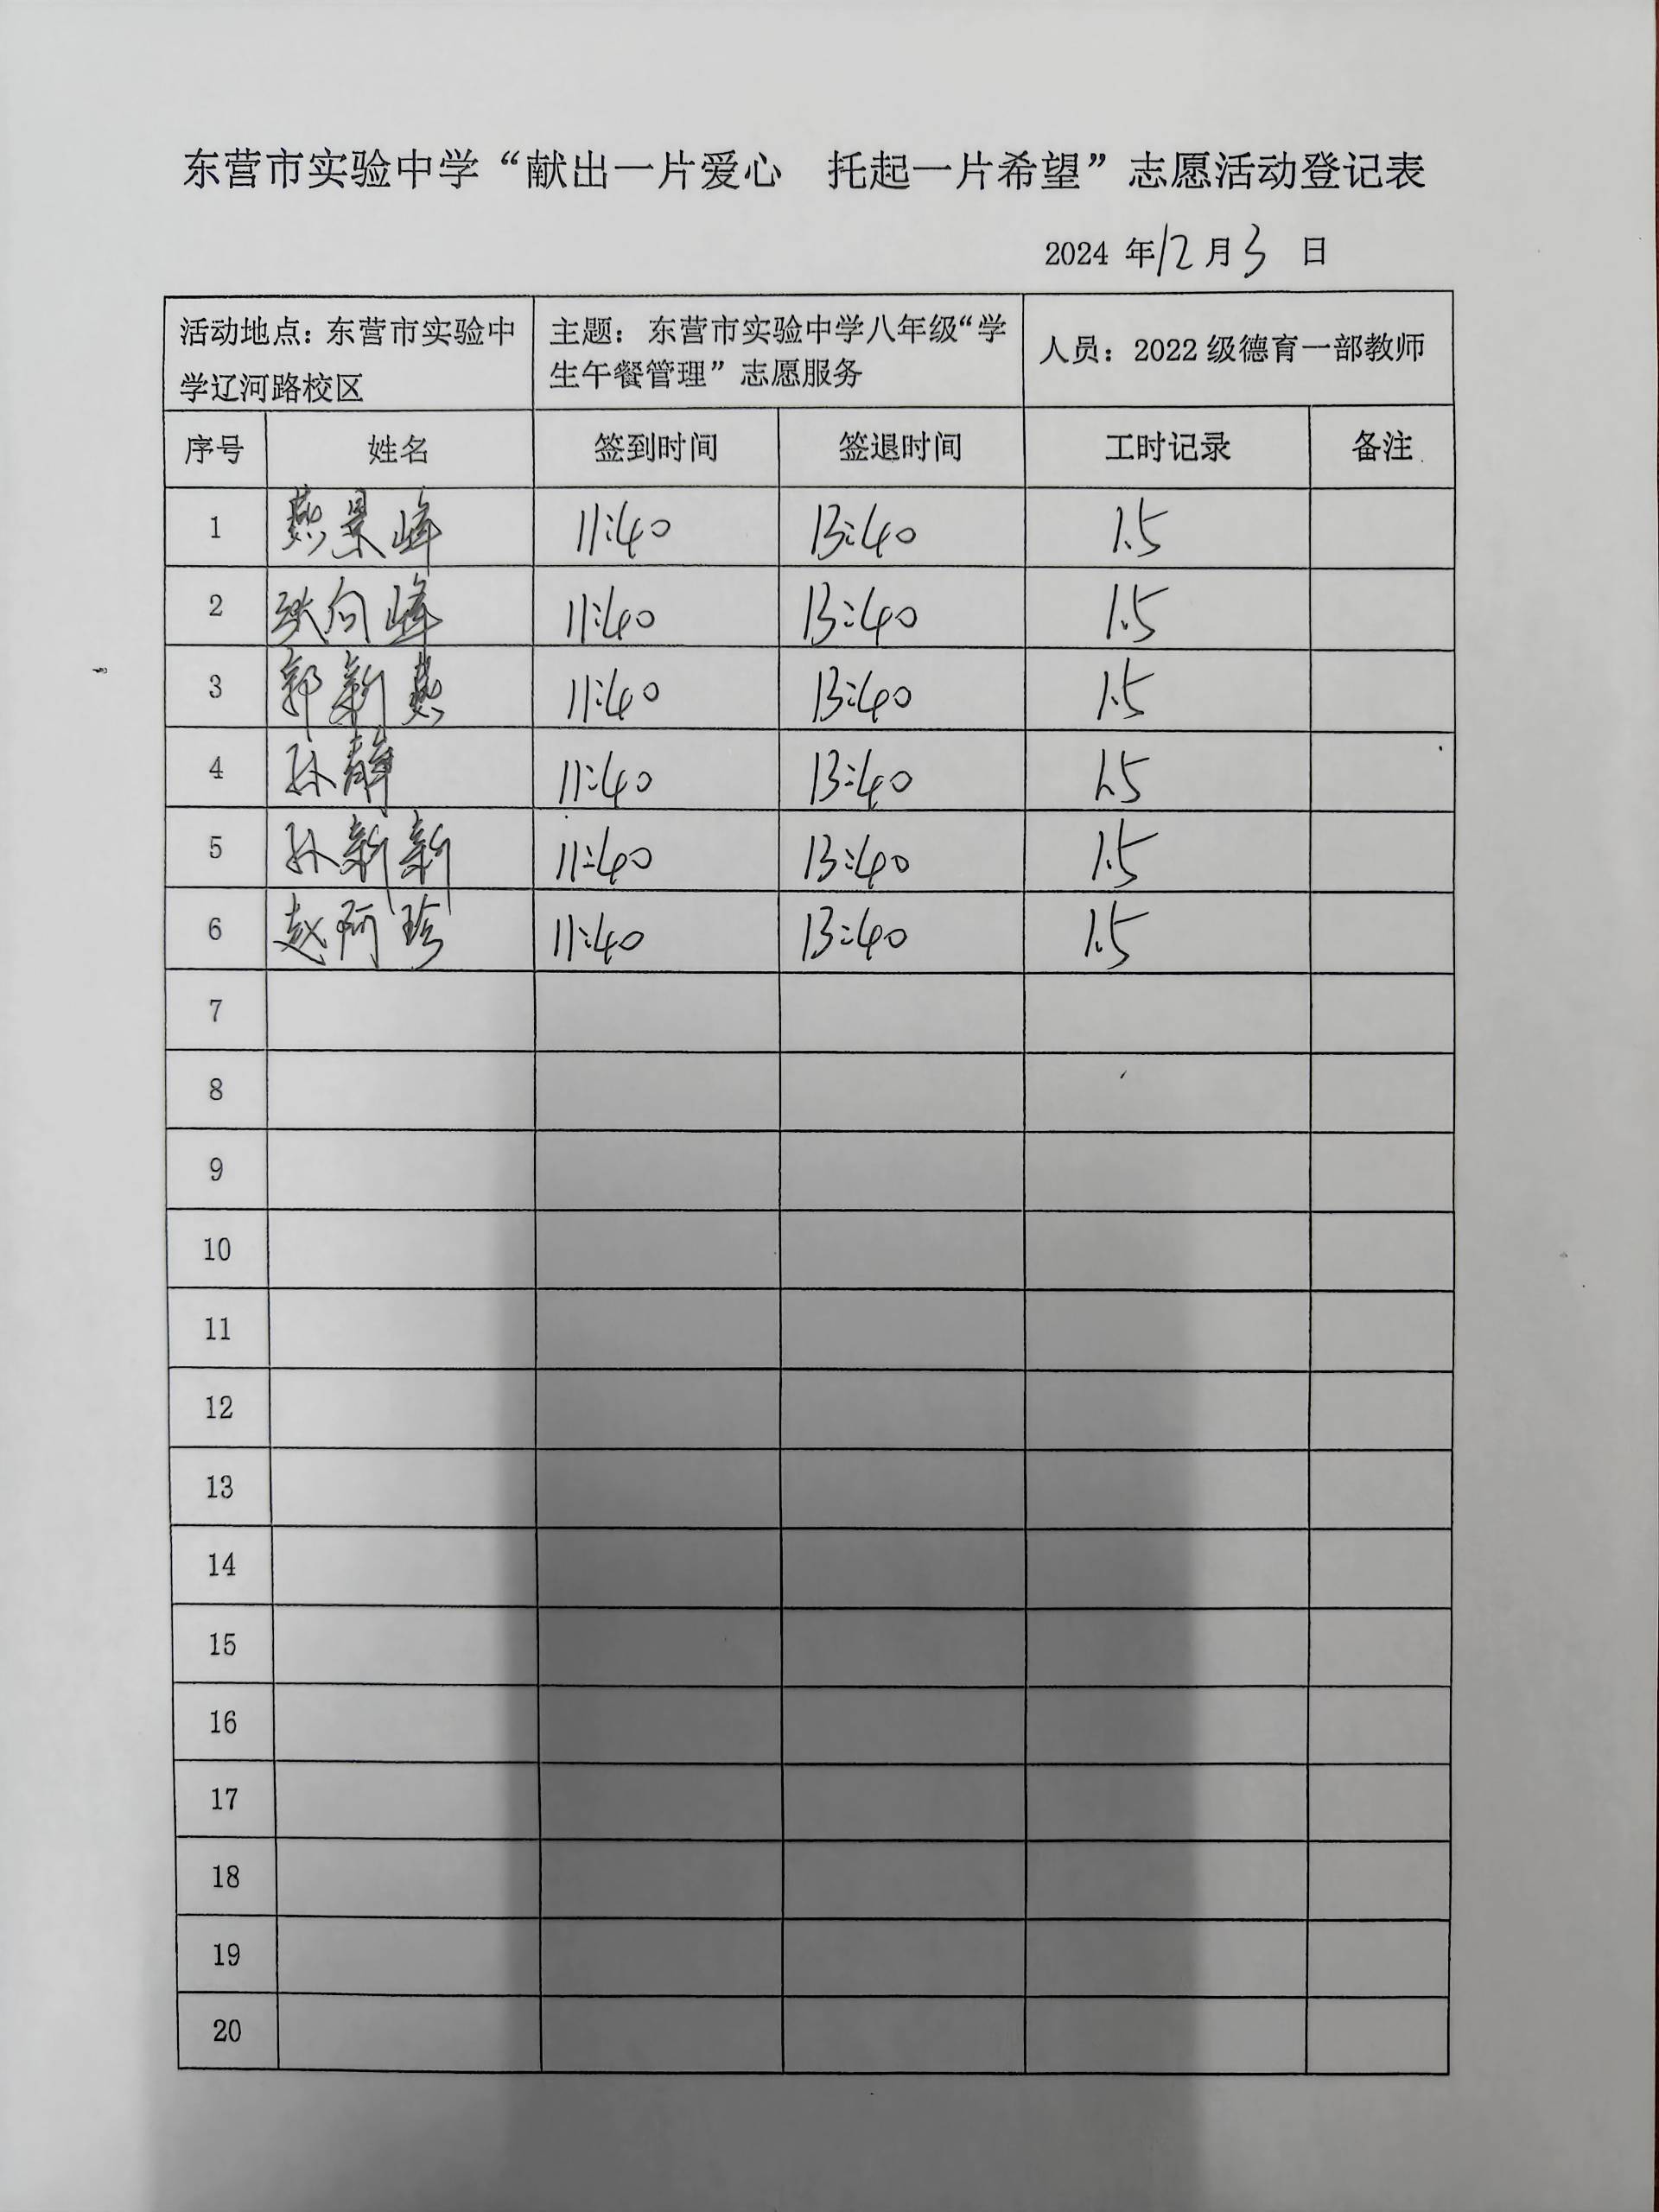 东营市实验中学“献出一片爱心 托起一片希望”志愿活动登记表
2024 年12月3 日
活动地点：东营市实验中学辽河路校区 主题：东营市实验中学八年级“学生午餐管理”志愿服务 人员：2022 级德育一部教师
序号 姓名 签到时间 签退时间 工时记录 备注
1 燕景峰 11:40 13:40 1.5
2 张向峰 11:40 13:40 1.5
3 郭新燕 11:40 13:40 1.5
4 孙静 11:40 13:40 1.5
5 孙新新 11:40 13:40 1.5
6 赵阿珍 11:40 13:40 1.5
7
8
9
10
11
12
13
14
15
16
17
18
19
20